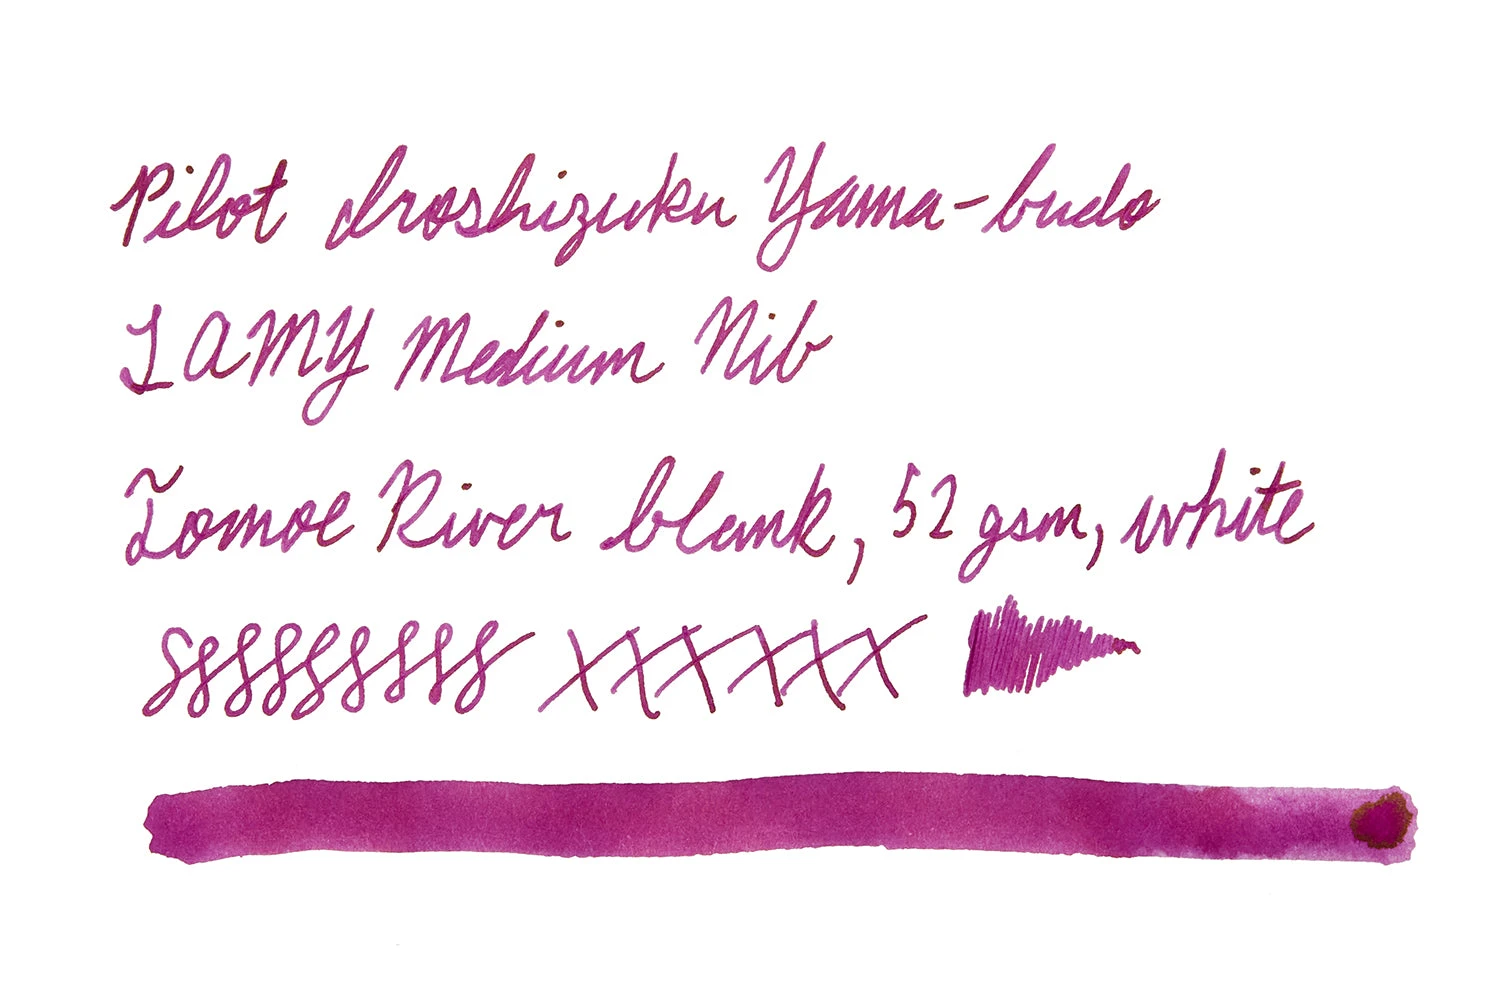 Pilot Iroshizuku Yama-budo
LAMY Medium Nib
Tomoe River blank, 52 gsm, white